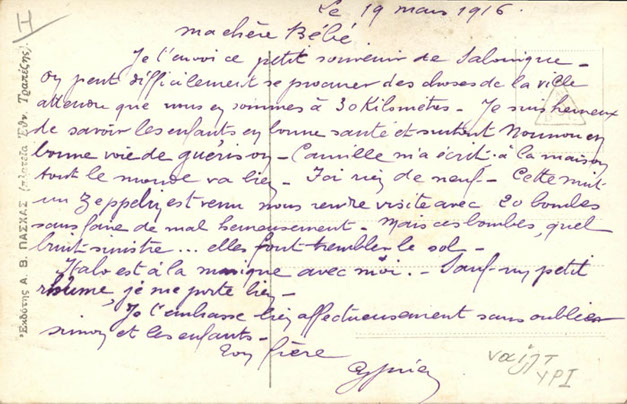 Le 19 mars 1916
ma chère Bébé
Je t'envoi ce petit souvenir de Salonique –
On peut difficilement se procurer des choses de la ville
attendu que nous en sommes à 30 Kilomètres – Je suis heureux
de savoir les enfants en bonne santé et surtout Nounou en
bonne voie de guérison – Camille m'a écrit à la maison
tout le monde va bien – J'ai rien de neuf – Cette nuit
un Zeppelin est venu nous rendre visite avec 20 bombes
sans faire de mal heureusement – Mais ces bombes, quel
bruit sinistre ... elles font trembler le sol –
Italo est à la musique avec moi. – Sauf un petit
rhume, je me porte bien –
Je t'embrasse bien affectueusement sans oublier
simon et les enfants –
Ton frère
Cyprien
Ἐκδότης Α. Β. ΠΑΣΧΑΣ (πλατεῖα Ἐθν. Τραπέζης)
H